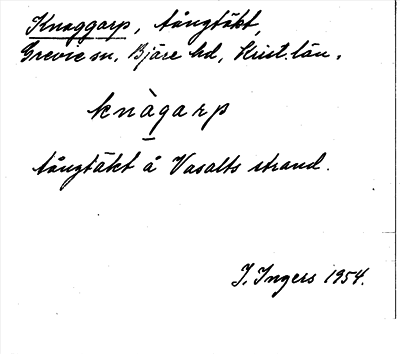 Knaggarp, tångtäkt,
Grevie sn, Bjäre hd, Krist. län.
knàgarp
tångtäkt å Vasalts strand.
I. Ingers 1954.